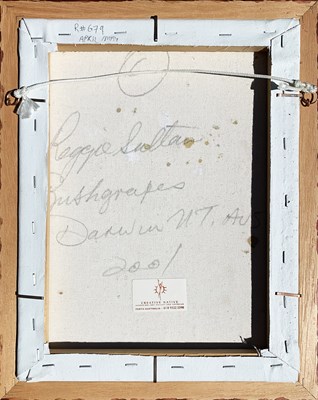 R# 679
APRIL
©
Reggie Sultan
Bushgrapes
Darwin N.T. AUS
2001
CREATIVE NATIVE